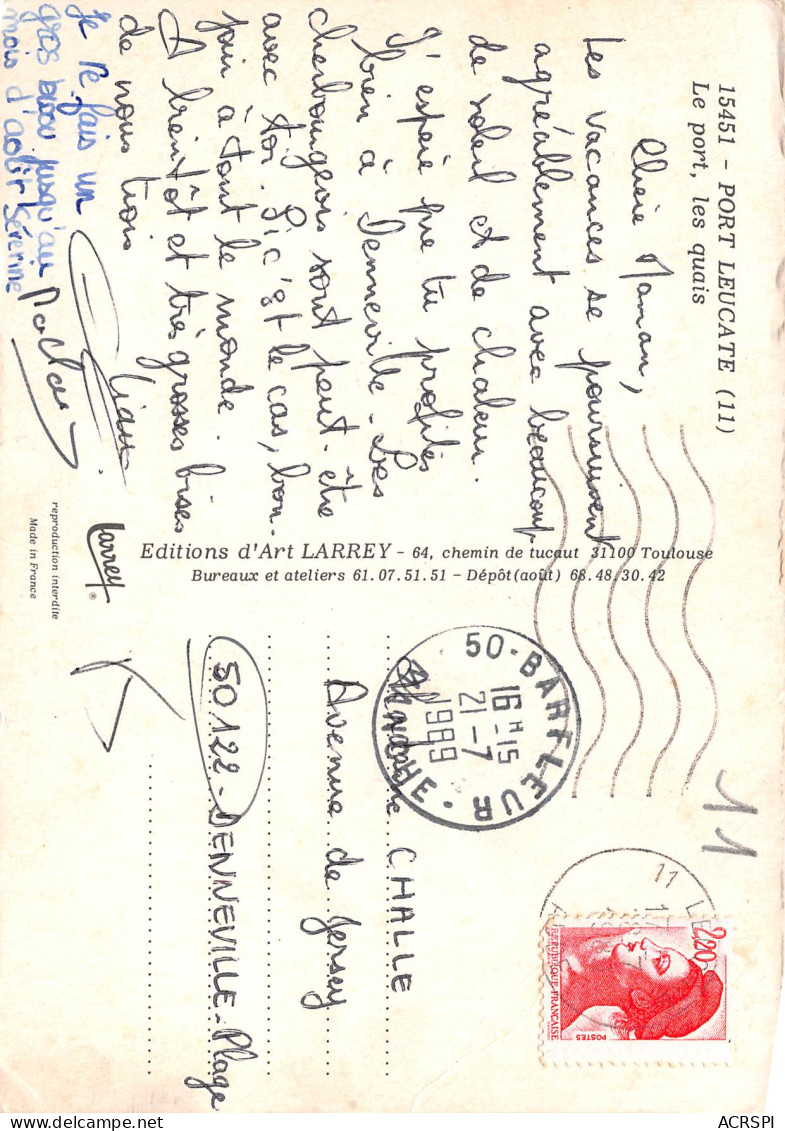 15451 - PORT LEUCATE (11)
Le port, les quais
Chère Maman,
Les vacances se poursuivent
agréablement avec beaucoup
de soleil et de chaleur.
J'espère que tu profites
bien à Denneville. Les
cherbourgeois sont peut-être
avec toi. Si c'est le cas, bon-
jour à tout le monde.
A bientôt et très grosses bises
de nous trois
Je te fais un
gros bisou jusqu'au
mois d'août Séverine
Editions d'Art LARREY - 64, chemin de tucaut 31100 Toulouse
Bureaux et ateliers 61.07.51.51 - Dépôt (août) 68.48.30.42
Larrey ®
reproduction interdite
Made in France
50-BARFLEUR
16H-15
21-7
1989
MANCHE
11
11 LE
2,20
REPUBLIQUE FRANÇAISE
POSTES
CHALLE
Avenue de Jersey
50122 - DENNEVILLE-Plage
ACRSPI